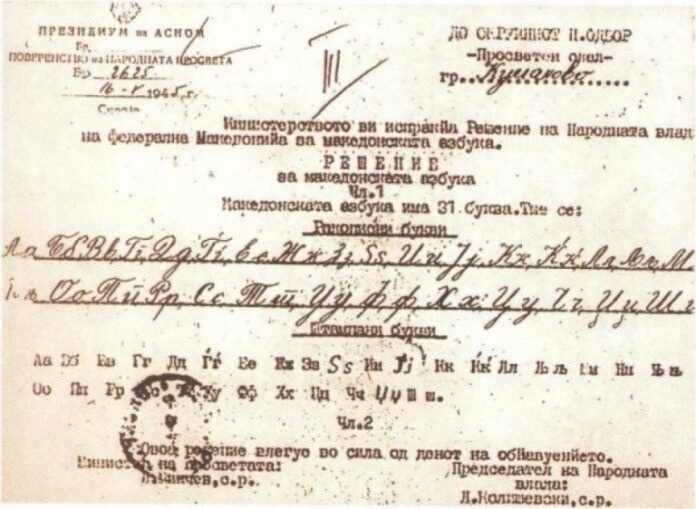 ПРЕЗИДИУМ на АСНОМ
Бр.
ПОВЕРЕНСТВО на НАРОДНАТА ПРОСВЕТА
Бр. 2625
16-V 1945 г.
Скопје
III
ДО ОКРУЖНИОТ Н.ОДБОР
-Просветен одел-
гр. Куманово
Министерството ви испраќа Решение на Народната влад
на федерална Македонија за македонската азбука.
РЕШЕНИЕ
за македонската азбука
Чл.1
Македонската азбука има 31 буква. Тие се:
Ракописни букви
Аа Бб Вв Гг Дд Ѓѓ Ее Жж Зз Ѕѕ Ии Јј Кк Ќќ Лл Љљ М
Њњ Оо Пп Рр Сс Тт Уу Фф Хх Цц Чч Џџ Ш
Штампани букви
Аа Бб Вв Гг Дд Ѓѓ Ее Жж Зз Ѕѕ Ии Јј Кк Ќќ Лл Љљ Мм Нн Њњ
Оо Пп Рр Сс Уу Фф Хх Цц Чч Џџ Шш.
Чл.2
Овој решение влегуе во сила од денот на обнавуението.
Министер на просветата:
Председател на Народната
влада:
Л.Колишевски, с.р.